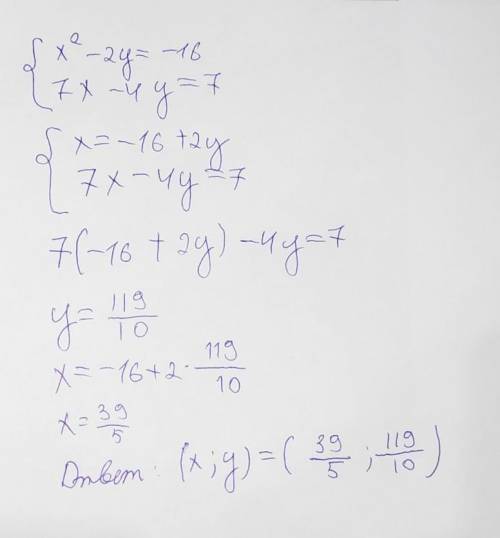 x² - 2y = -16
7x - 4y = 7
x = -16 + 2y
7x - 4y = 7
7(-16 + 2y) - 4y = 7
y = 119/10
x = -16 + 2 · 119/10
x = 39/5
Ответ: (x; y) = (39/5; 119/10)